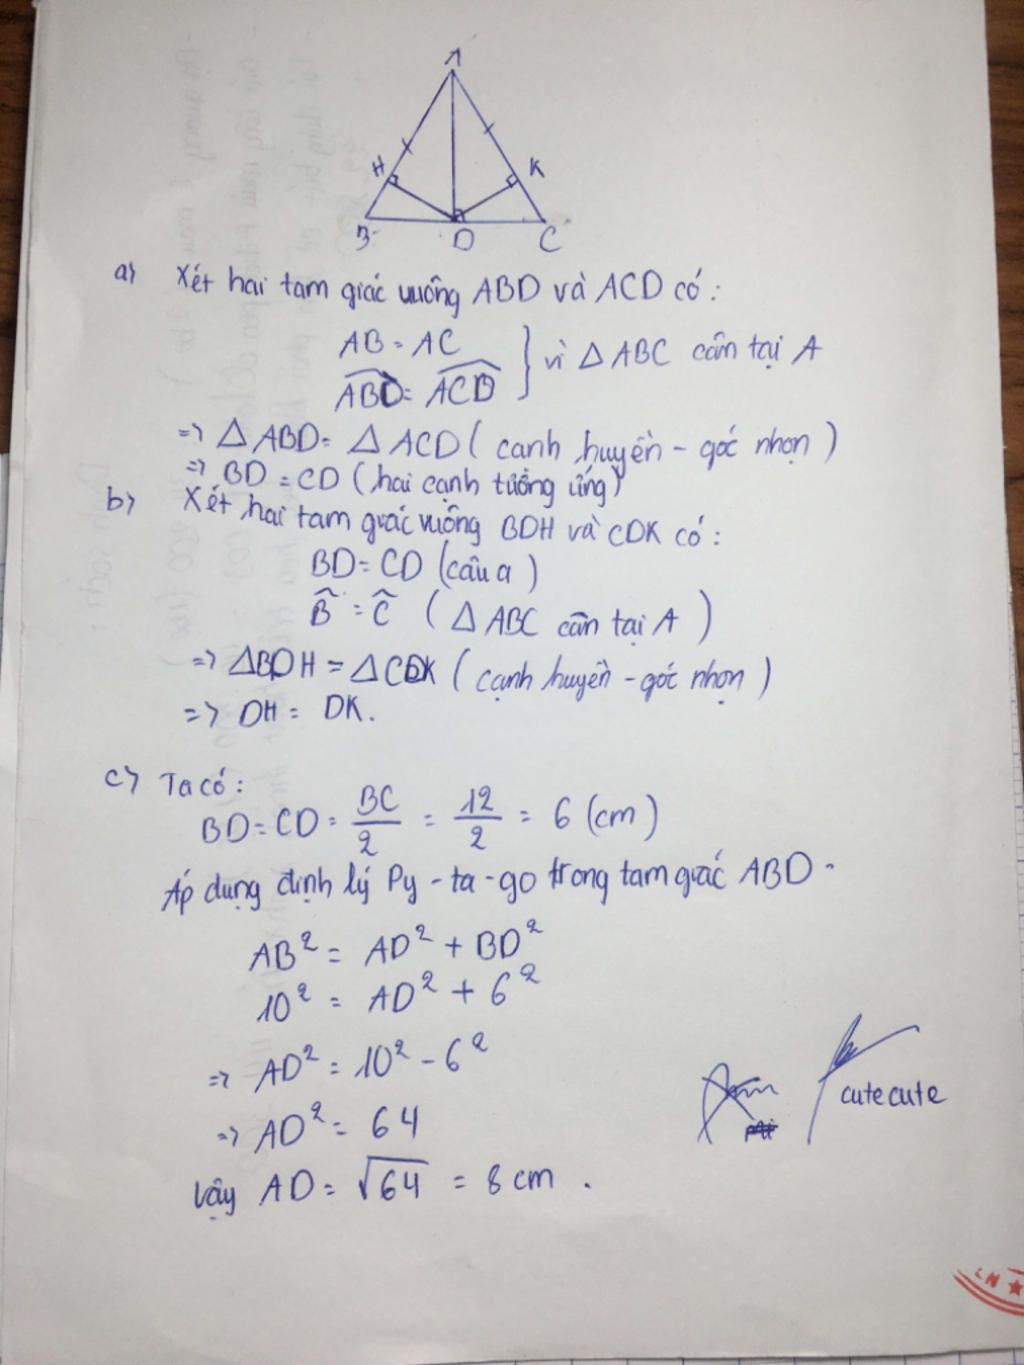 A
H
K
B
D
C
a) Xét hai tam giác vuông ABD và ACD có:
AB = AC
ABD = ACD } vì △ ABC cân tại A
=> △ ABD = △ ACD ( cạnh huyền - góc nhọn )
=> BD = CD ( hai cạnh tương ứng )
b) Xét hai tam giác vuông BDH và CDK có:
BD = CD (câu a )
B̂ = Ĉ ( △ ABC cân tại A )
=> △BDH = △CDK ( cạnh huyền - góc nhọn )
=> DH = DK.
c) Ta có:
BD = CD = BC/2 = 12/2 = 6 (cm)
Áp dụng định lý Py - ta - go trong tam giác ABD.
AB² = AD² + BD²
10² = AD² + 6²
=> AD² = 10² - 6²
=> AD² = 64
Vậy AD = √64 = 8 cm .
cute cute